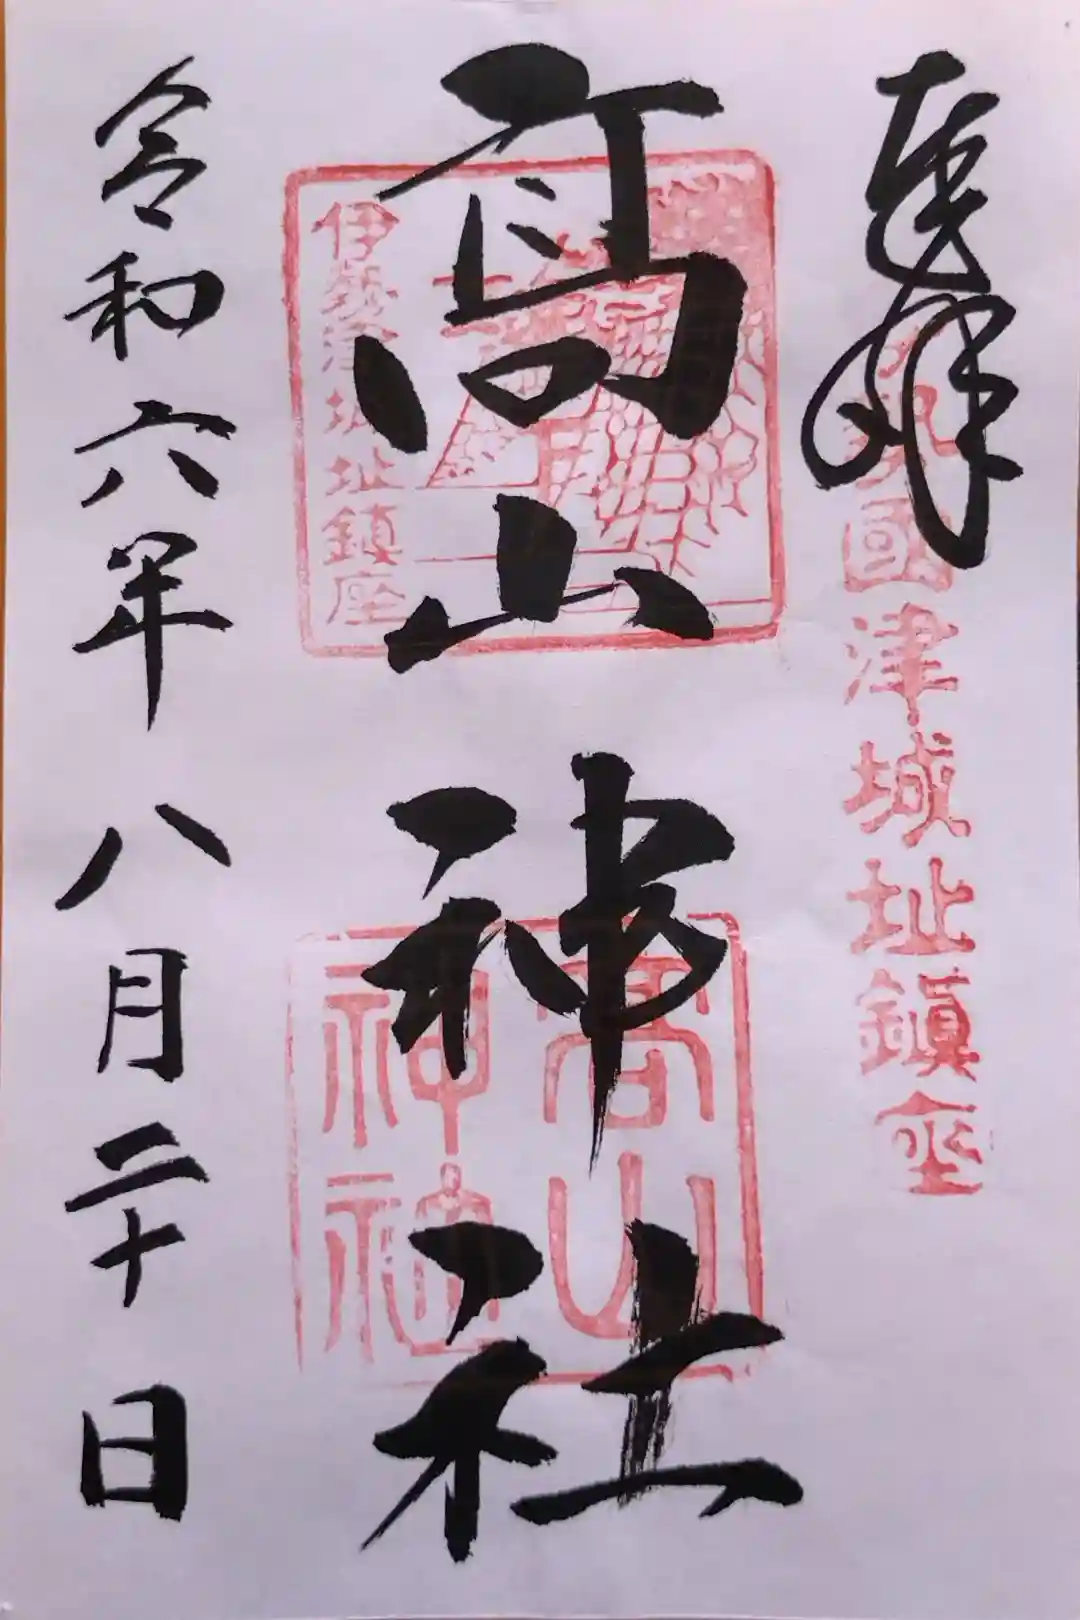 奉拝
國津城址鎮座
高山神社
伊勢津城址鎮座
高山
神社
令和六年八月二十日